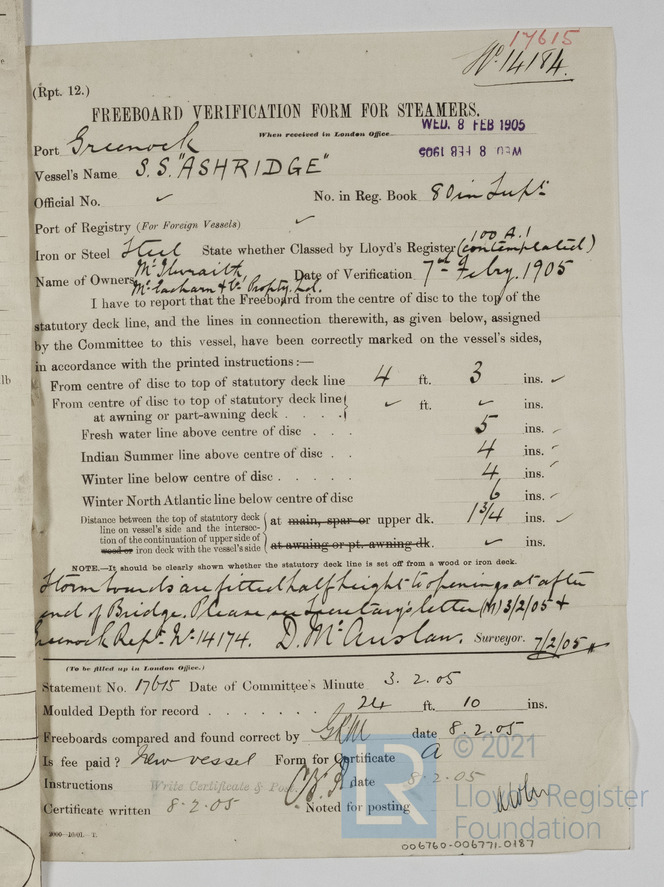 17615
No. 14184.
(Rpt. 12.)
FREEBOARD VERIFICATION FORM FOR STEAMERS.
When received in London Office WED. 8 FEB 1905
WED. 8 FEB 1905
Port Greenock
Vessel's Name S.S. "ASHRIDGE"
Official No. ✓ No. in Reg. Book 80 in Supt.
Port of Registry (For Foreign Vessels) ✓
Iron or Steel Steel State whether Classed by Lloyd's Register 100 A.1 (contemplated)
Name of Owners McIlwraith, McEacharn & Co. Propty. Ltd. Date of Verification 7th Febry. 1905
I have to report that the Freeboard from the centre of disc to the top of the
statutory deck line, and the lines in connection therewith, as given below, assigned
by the Committee to this vessel, have been correctly marked on the vessel's sides,
in accordance with the printed instructions:—
From centre of disc to top of statutory deck line 4 ft. 3 ins. ✓
From centre of disc to top of statutory deck line
at awning or part-awning deck . . . . ✓ ft. ✓ ins.
Fresh water line above centre of disc . . . 5 ins. ✓
Indian Summer line above centre of disc . . 4 ins. ✓
Winter line below centre of disc . . . . . 4 ins. ✓
Winter North Atlantic line below centre of disc 6 ins. ✓
Distance between the top of statutory deck
line on vessel's side and the intersec-
tion of the continuation of upper side of
wood or iron deck with the vessel's side
at main, spar or upper dk. 1 3/4 ins. ✓
at awning or pt. awning dk. ✓ ins.
NOTE.—It should be clearly shown whether the statutory deck line is set off from a wood or iron deck.
Storm boards are fitted half height to openings at after
end of Bridge. Please see Secretary's letter (M) 3/2/05 &
Greenock Rept. No. 14174. D. McAuslan. Surveyor. 7/2/05
(To be filled up in London Office.)
Statement No. 17615 Date of Committee's Minute 3. 2. 05
Moulded Depth for record . . . . . . . 24 ft. 10 ins.
Freeboards compared and found correct by GRM date 8.2.05
Is fee paid? New vessel Form for Certificate A
Instructions Write Certificate & Post. date 8.2.05
Certificate written 8.2.05 Noted for posting
2000—10/01.—T.
© 2021
LR
Lloyd's Register
Foundation
006760-006771.0187